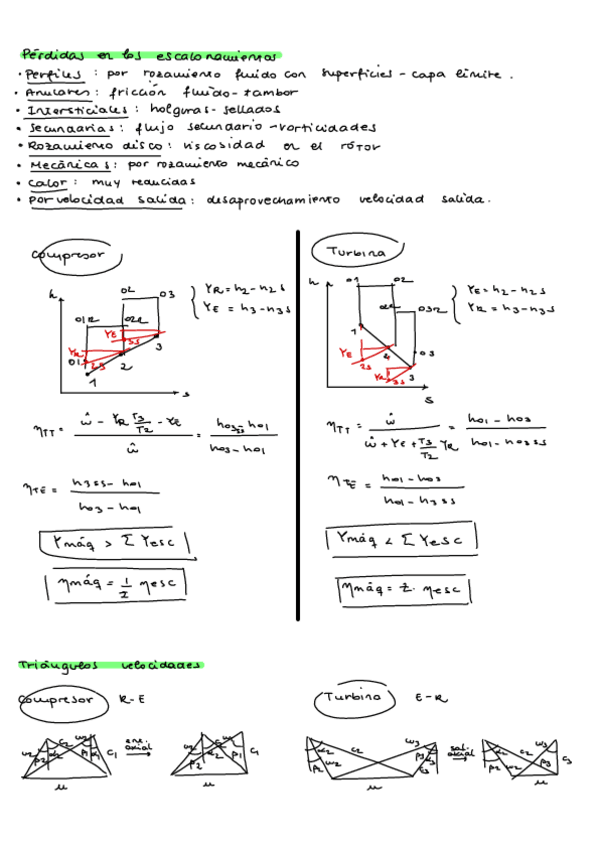 Pérdidas en los escalonamientos
• Perfiles : por rozamiento fluido con superficies - capa límite.
• Anulares : fricción fluido-tambor
• Intersticiales : holguras - sellados
• Secundarias : flujo secundario - vorticidades
• Rozamiento disco : viscosidad en el rótor
• Mecánicas : por rozamiento mecánico
• Calor : muy reducidas
• por velocidad salida : desaprovechamiento velocidad salida.
Compresor
h
02
03
01R
02R
YE
3s
3
YR
01
2s
2
1
s
YR = h2 - h2s
YE = h3 - h3s
ηTT = (ŵ - YR T3/T2 - YE) / ŵ = (h03ss - h01) / (h03 - h01)
ηTE = (h3ss - h01) / (h03 - h01)
Ymáq > Σ Yesc
ηmáq = 1/z ηesc
Turbina
h
01
02
02R
03R
1
YE
2s
2
03
YR
3s
3
S
YE = h2 - h2s
YR = h3 - h3s
ηTT = ŵ / (ŵ + YE + T3/T2 YR) = (h01 - h03) / (h01 - h03ss)
ηTE = (h01 - h03) / (h01 - h3ss)
Ymáq < Σ Yesc
ηmáq = z · ηesc
Triángulos velocidades
Compresor R-E
w2 β2 α2 c2 w1 β1 α1 C1
u
ent. axial
β2 c2 α2 w1 β1 C1
u
Turbina E-R
α2 β2 w2 c2 w3 β3 α3 c3
u
sal. axial
α2 β2 w2 c2 w3 β3 c3
u